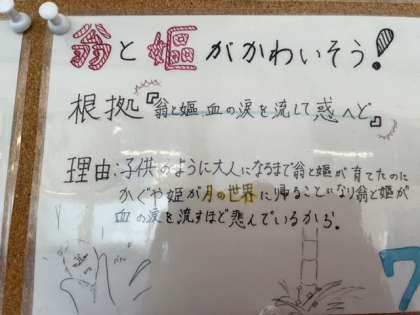 翁と嫗がかわいそう!
根拠『翁と嫗血の涙を流して惑へど』
理由:子供のように大人になるまで翁と嫗が育てたのに
かぐや姫が月の世界に帰ることになり翁と嫗が
血の涙を流すほど悲んでいるから。
7